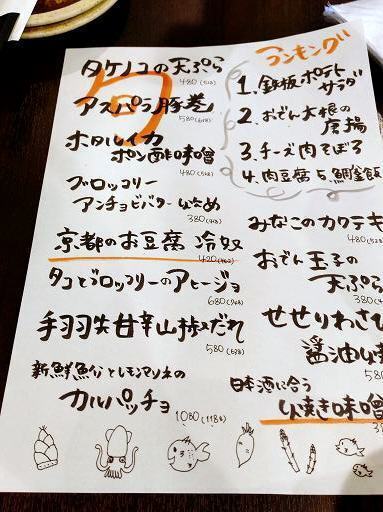 旬
タケノコの天ぷら
480(528)
アスパラ豚巻
580(638)
ホタルイカ
ポン酢味噌
480(528)
ブロッコリー
アンチョビバター炒め
380(418)
京都のお豆腐 冷奴
420(462)
タコとブロッコリーのアヒージョ
680(748)
手羽先甘辛山椒だれ
580(638)
新鮮魚介とレモンマリネの
カルパッチョ
1080(1188)
ランキング
1.鉄板ポテト
サラダ
2.おでん大根の
唐揚
3.チーズ肉そぼろ
4.肉豆腐
みなこのカクテキ
480(528
おでん玉子の
天ぷら
380(4
せせりわさび
醤油
580
日本酒に合う
焼き味噌